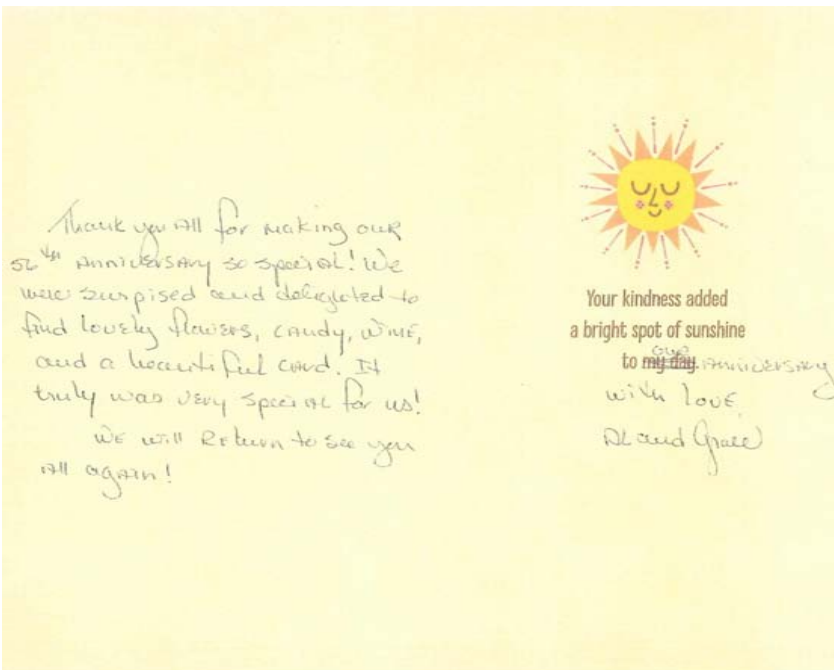 Thank you All for making our
56th Anniversary so special! We
were surprised and delighted to
find lovely flowers, candy, wine,
and a beautiful card. It
truly was very special for us!
We will Return to see you
All again!
Your kindness added
a bright spot of sunshine
to my day. our Anniversary
with love,
Al and Grace